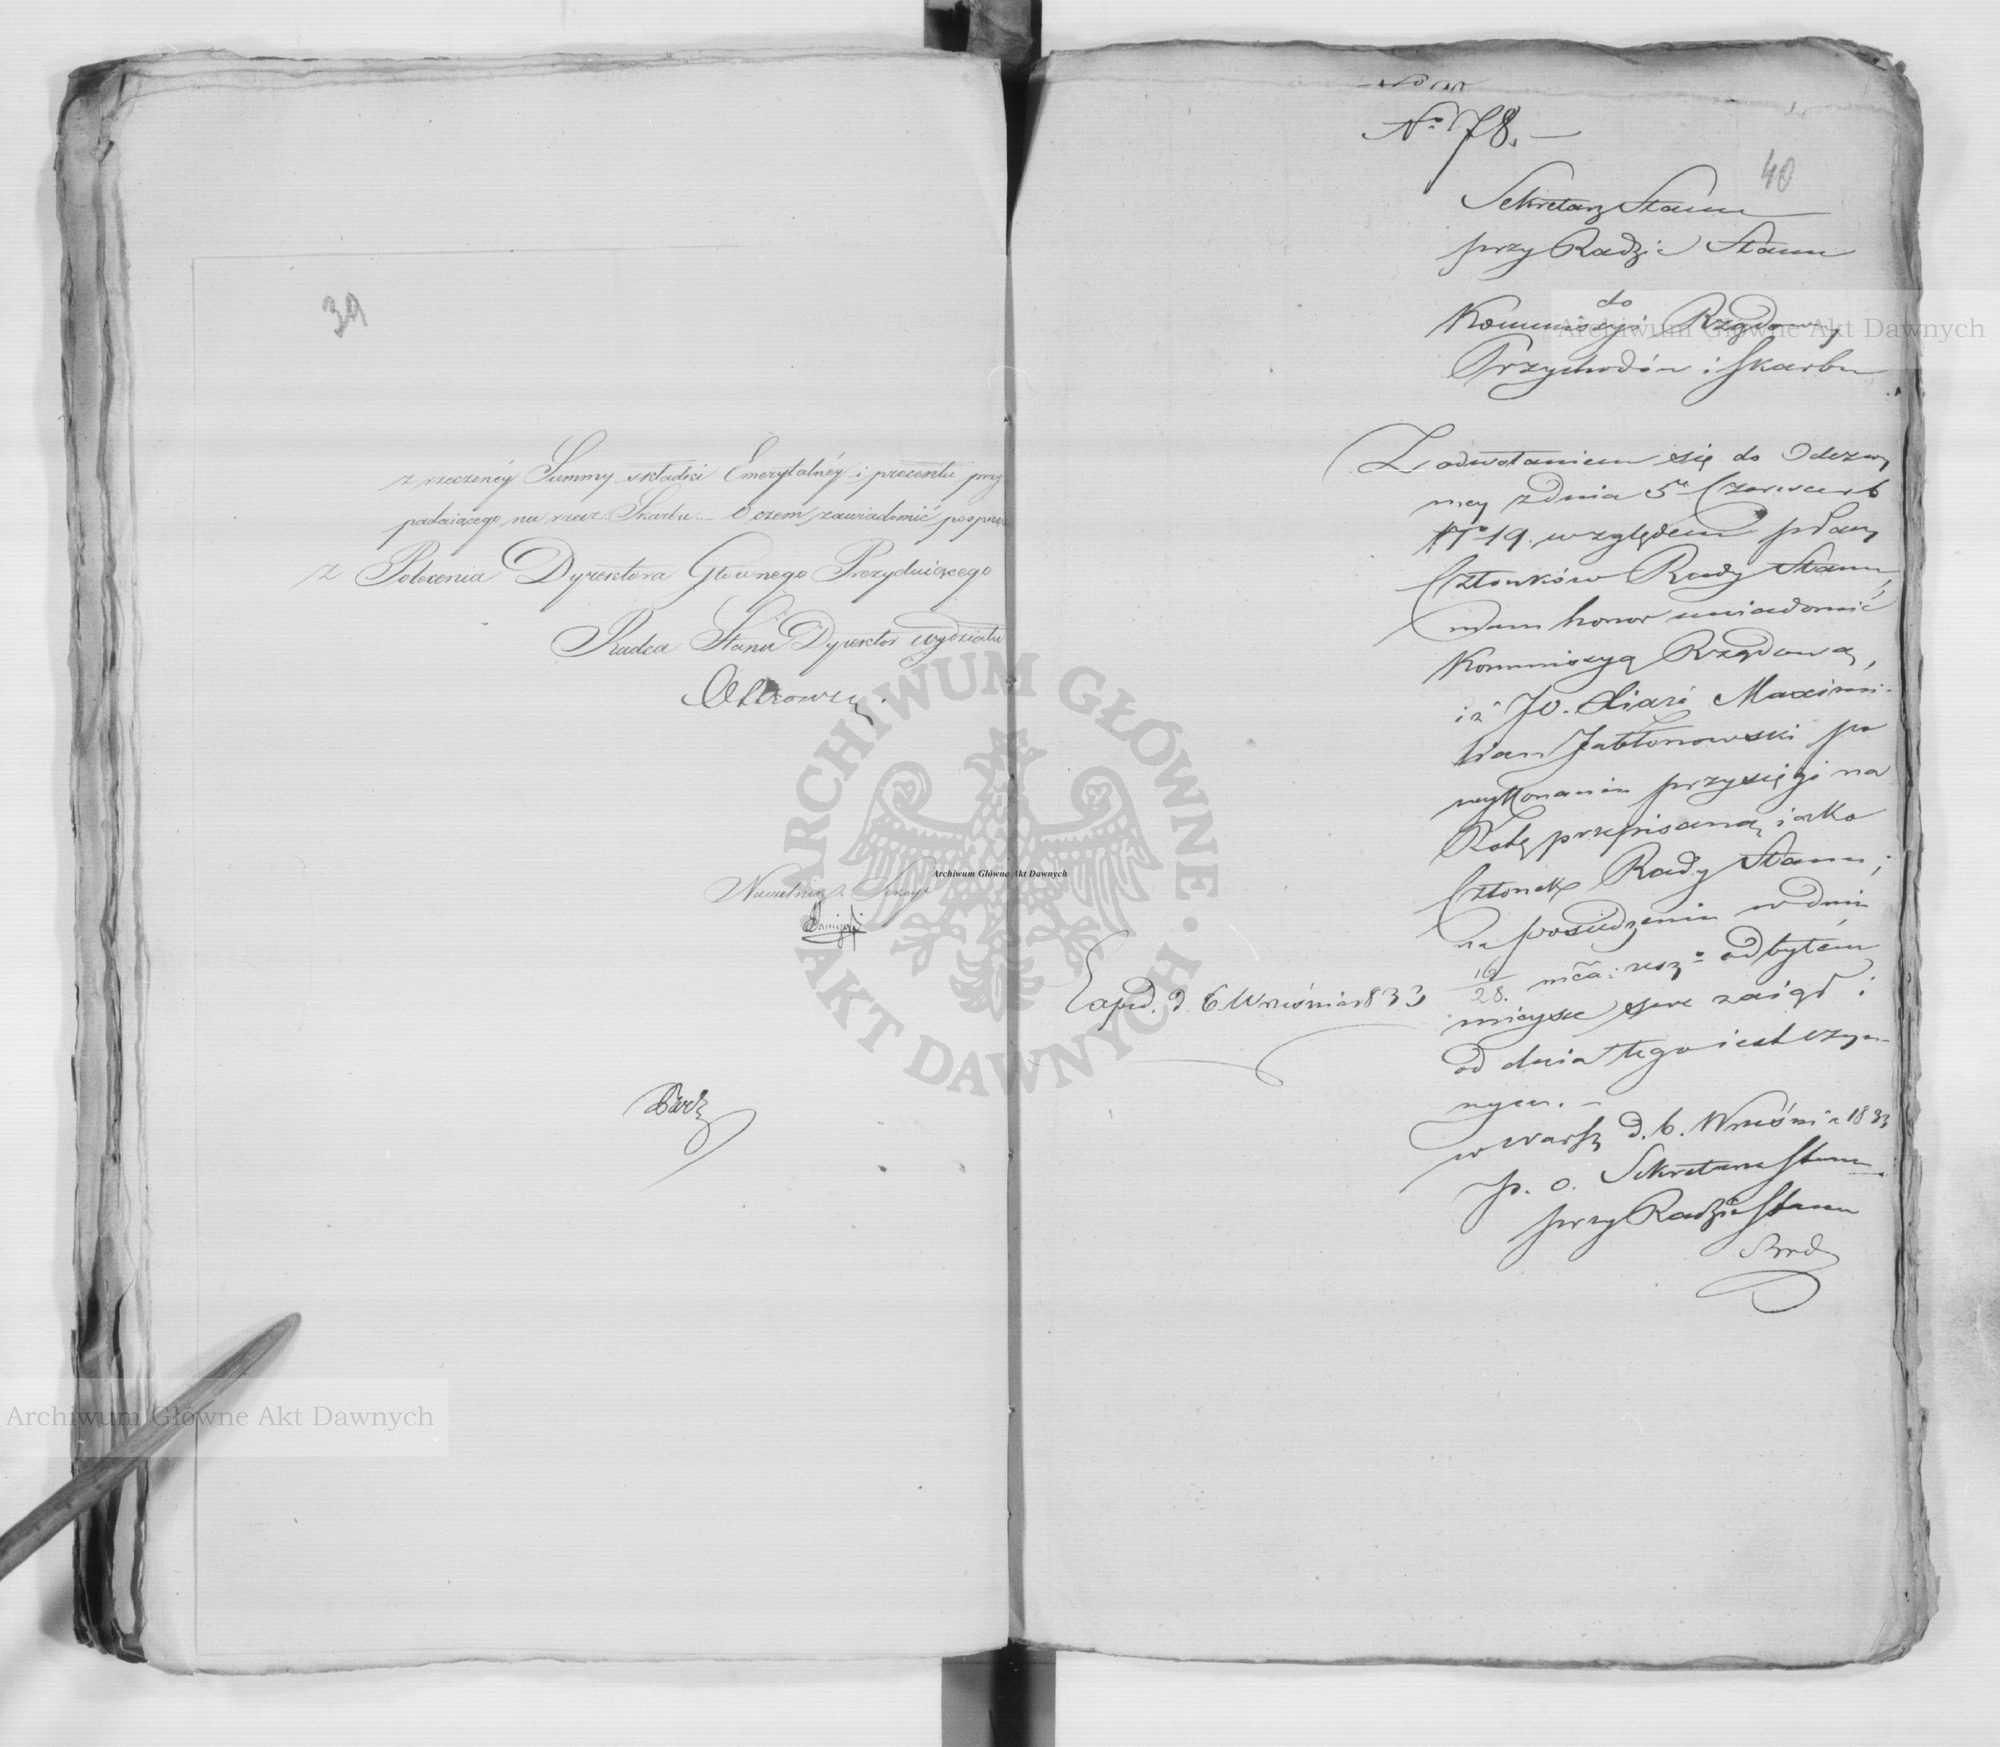 39
z rzeczonéy Summy składki Emerytalnéy i procentu przy
padaiącego na rzecz Skarbu. O czem zawiadomić pospiesza
Z Polecenia Dyrektora Głównego Prezyduiącego
Radca Stanu Dyrektor Wydziału
Naczelnik Sekcyi
No 78.
40
Sekretarz Stanu
przy Radzie Stanu
do
Kommissyi Rządowy
Przychodów i Skarbu
Z odwołaniem się do Odezwy
mey z dnia 5o Czerwca r b
No 19. względem płacy
Członków Rady Stanu,
mam honor uwiadomić
Kommissyą Rządową,
iż JO. Xiąże Maximi-
lian Jabłonowski po
wykonaniu przysięgi na
Rotę przepisaną, iako
Członek Rady Stanu;
na posiedzeniu w dniu
16/28. mca: zesz: odbytém
mieysce swe zaiął i
od dnia tego iest czyn-
nym. —
w Warsz d. 6. Wrześnią 1833
p. o. Sekretarza Stanu
przy Radzie Stanu
Exped. d. 6 Września 1833
Archiwum Główne Akt Dawnych
Archiwum Główne Akt Dawnych
Archiwum Główne Akt Dawnych
ARCHIWUM GŁÓWNE · AKT DAWNYCH ·